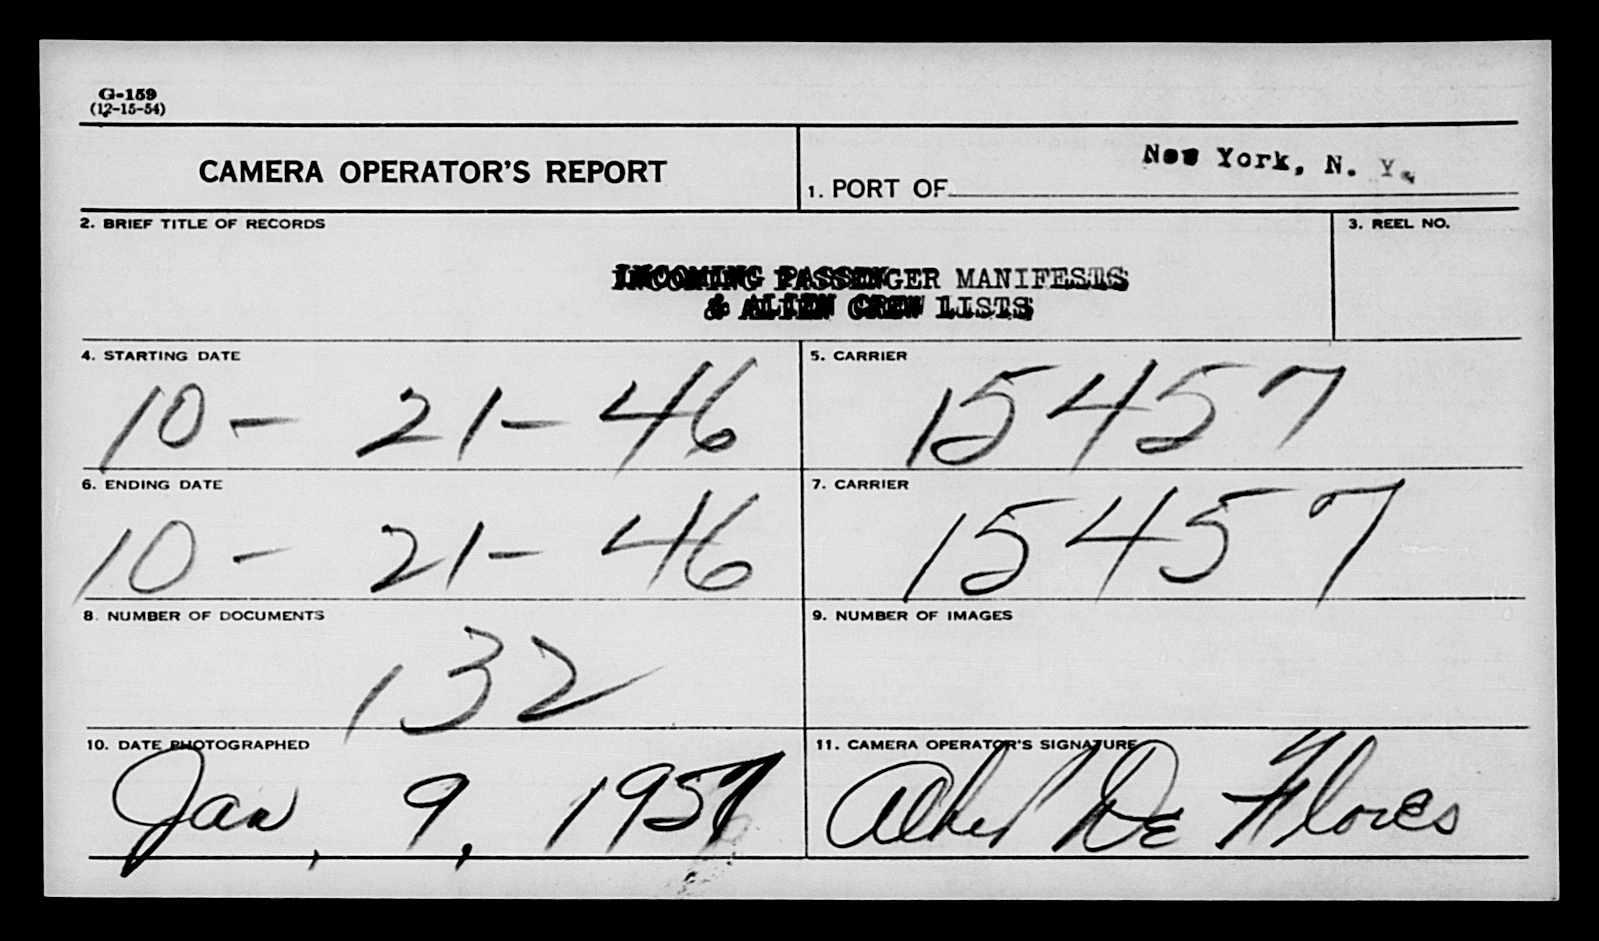 G-159
(12-15-54)
CAMERA OPERATOR'S REPORT
1. PORT OF New York, N. Y.
2. BRIEF TITLE OF RECORDS
3. REEL NO.
INCOMING PASSENGER MANIFESTS
& ALIEN CREW LISTS
4. STARTING DATE
5. CARRIER
10-21-46
15457
6. ENDING DATE
7. CARRIER
10-21-46
15457
8. NUMBER OF DOCUMENTS
9. NUMBER OF IMAGES
132
10. DATE PHOTOGRAPHED
11. CAMERA OPERATOR'S SIGNATURE
Jan, 9, 1957
De Flores